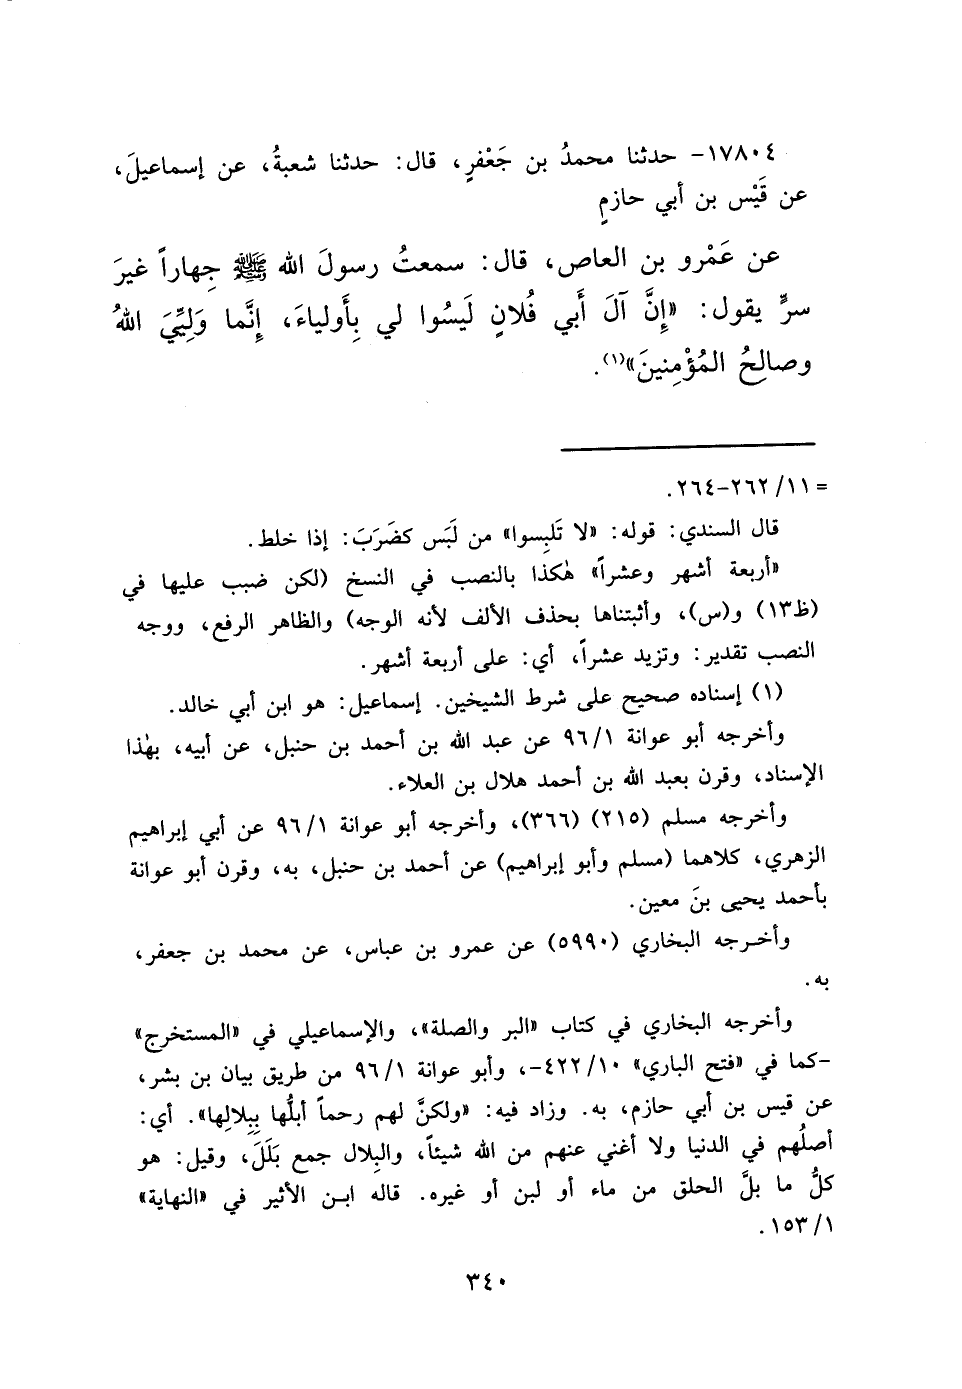 ١٧٨٠٤- حدثنا محمدُ بن جَعْفرٍ، قال: حدثنا شعبةُ، عن إسماعيلَ،
عن قَيْس بن أبي حازمٍ
عن عَمْرو بن العاص، قال: سمعتُ رسولَ الله ﷺ جِهاراً غيرَ
سرٍّ يقول: «إِنَّ آلَ أَبي فُلانٍ لَيسُوا لي بِأَولياءَ، إِنَّما وَلِيِّيَ اللهُ
وصالحُ المُؤْمِنينَ»(١).
= ١١/ ٢٦٢-٢٦٤.
قال السندي: قوله: «لا تَلبِسوا» من لَبَس كضَرَبَ: إذا خلط.
«أربعة أشهر وعشراً» هٰكذا بالنصب في النسخ (لكن ضبب عليها في
(ظ١٣) و(س)، وأثبتناها بحذف الألف لأنه الوجه) والظاهر الرفع، ووجه
النصب تقدير: وتزيد عشراً، أي: على أربعة أشهر.
(١) إسناده صحيح على شرط الشيخين. إسماعيل: هو ابن أبي خالد.
وأخرجه أبو عوانة ٩٦/١ عن عبد الله بن أحمد بن حنبل، عن أبيه، بهٰذا
الإسناد، وقرن بعبد الله بن أحمد هلال بن العلاء.
وأخرجه مسلم (٢١٥) (٣٦٦)، وأخرجه أبو عوانة ٩٦/١ عن أبي إبراهيم
الزهري، كلاهما (مسلم وأبو إبراهيم) عن أحمد بن حنبل، به، وقرن أبو عوانة
بأحمد يحيى بنَ معين.
وأخرجه البخاري (٥٩٩٠) عن عمرو بن عباس، عن محمد بن جعفر،
به.
وأخرجه البخاري في كتاب «البر والصلة»، والإسماعيلي في «المستخرج»
-كما في «فتح الباري» ٤٢٢/١٠-، وأبو عوانة ٩٦/١ من طريق بيان بن بشر،
عن قيس بن أبي حازم، به. وزاد فيه: «ولكنَّ لهم رحماً أبلُّها بِبِلالِها». أي:
أصلُهم في الدنيا ولا أغني عنهم من الله شيئاً، والبِلال جمع بَلَلَ، وقيل: هو
كلُّ ما بلَّ الحلق من ماء أو لبن أو غيره. قاله ابن الأثير في «النهاية»
١٥٣/١.
٣٤٠